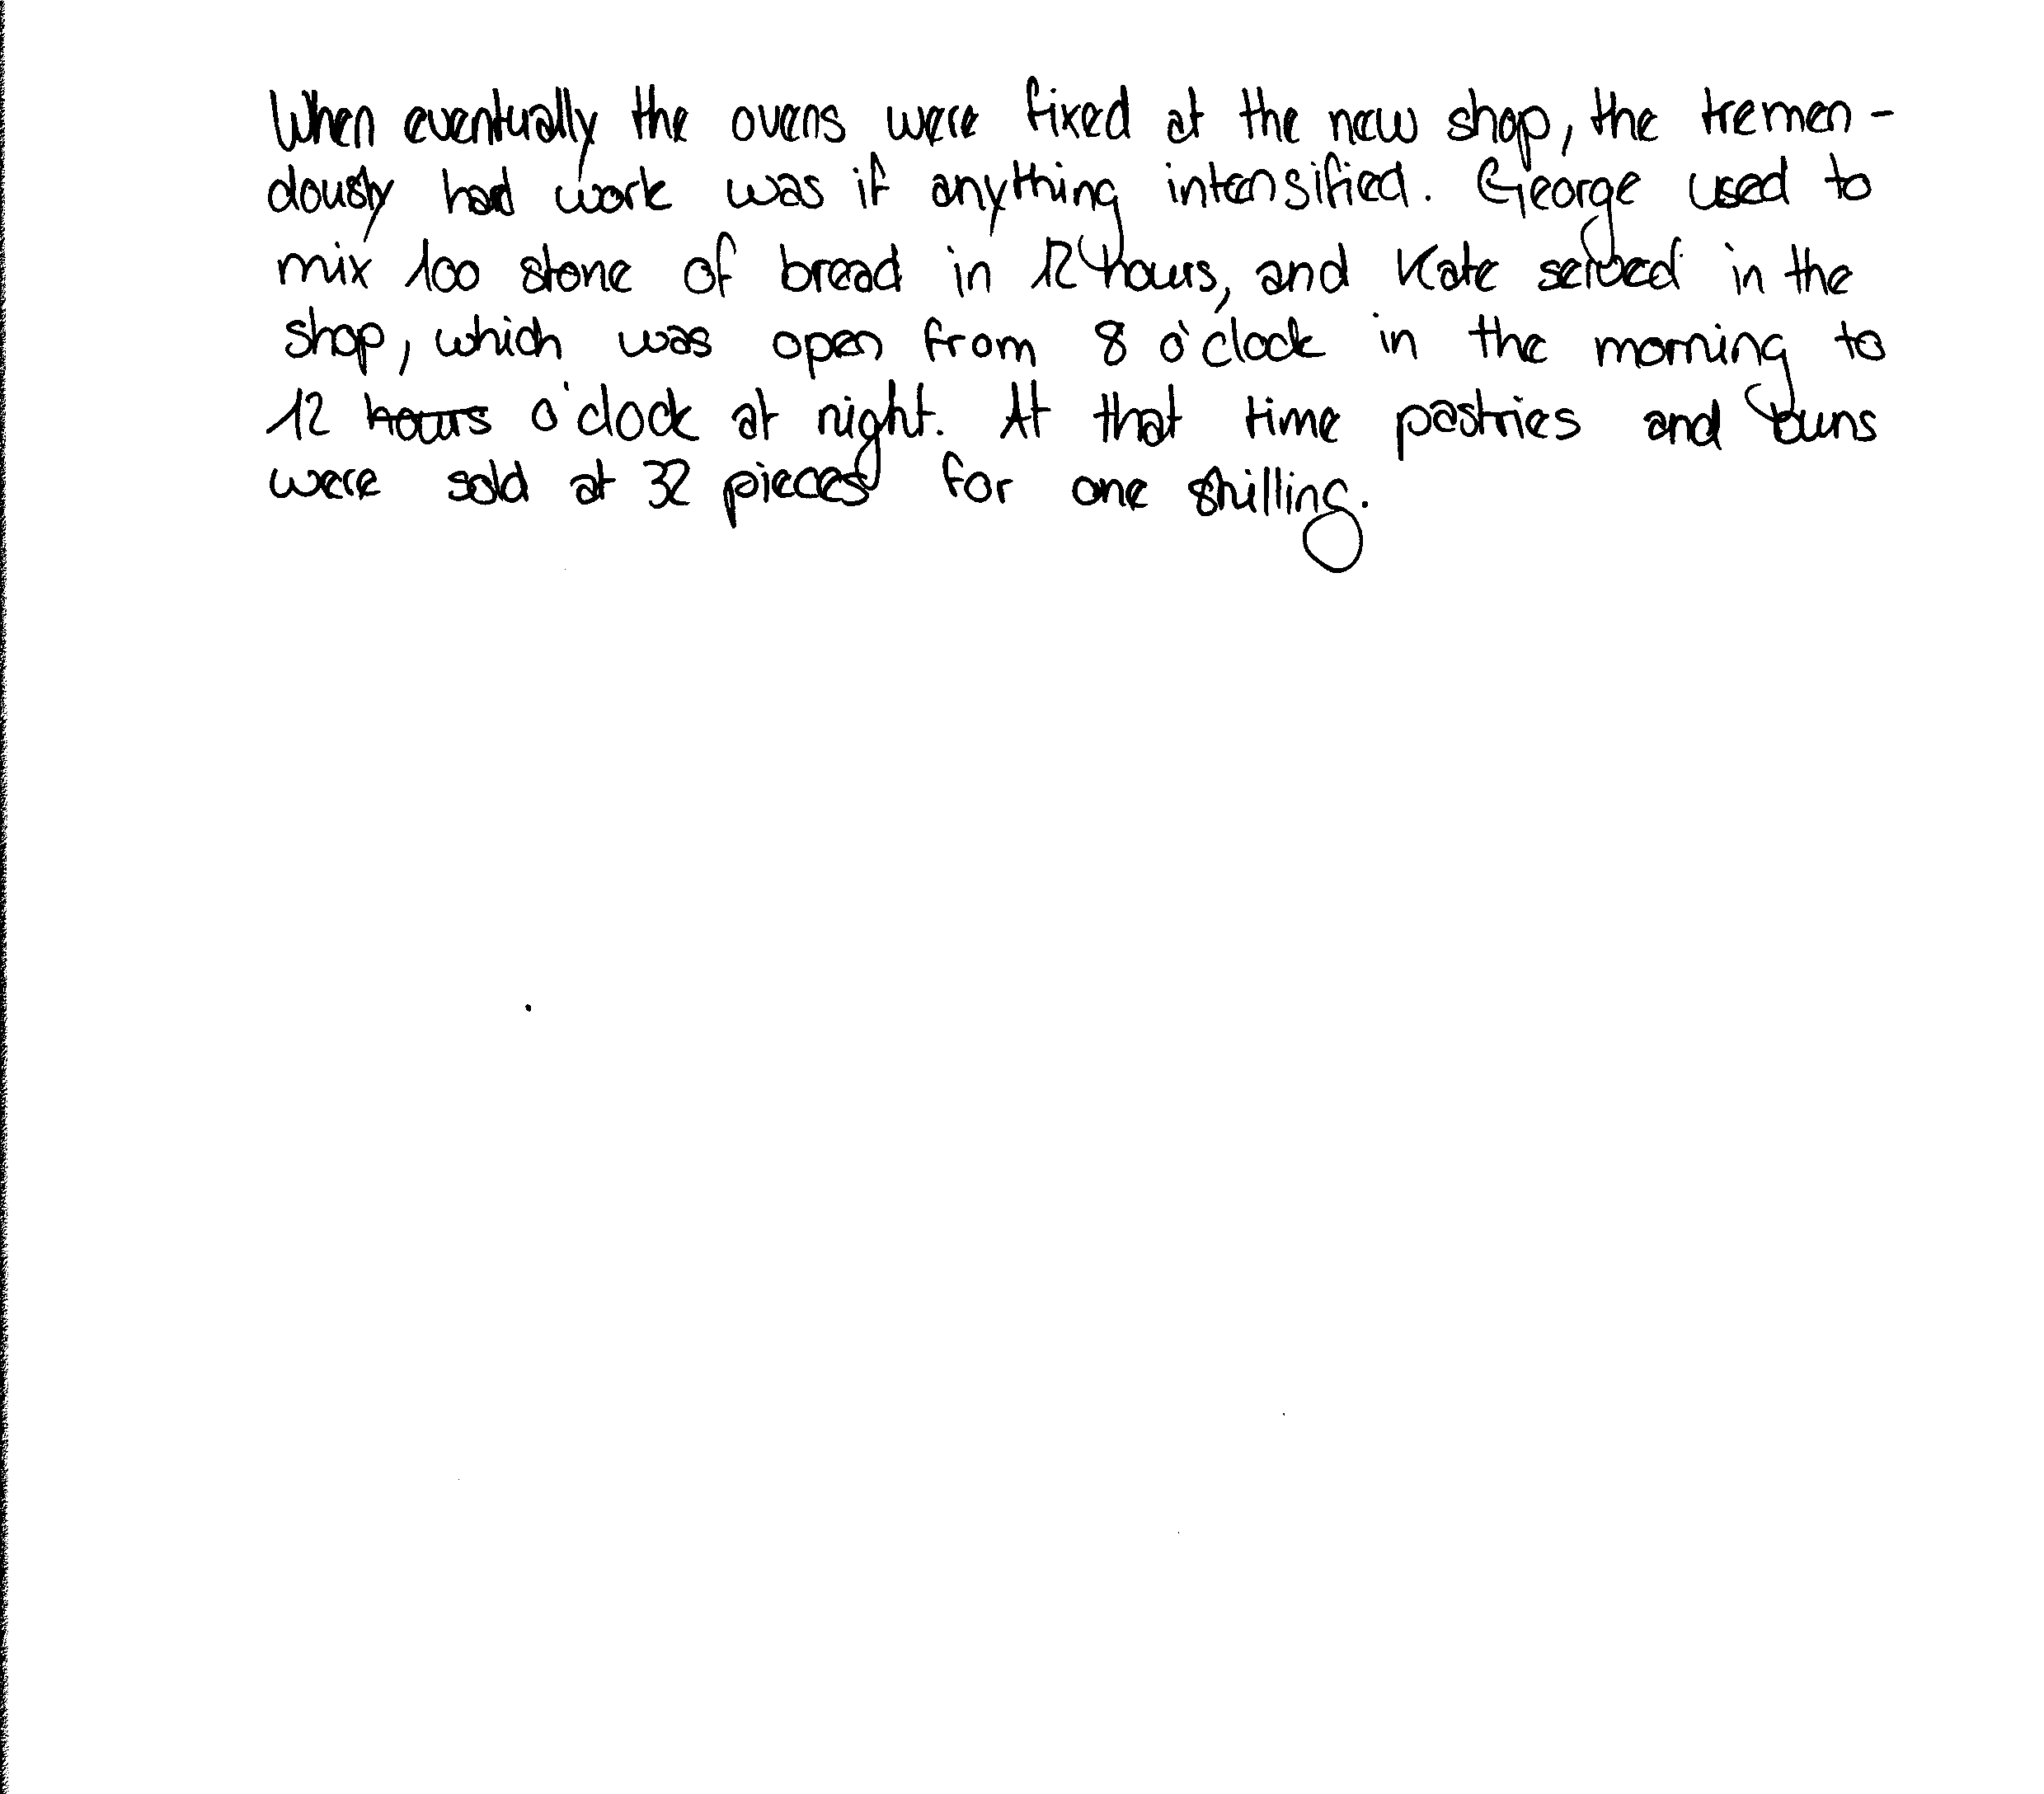 When eventually the ovens were fixed at the new shop, the tremen-
dously hard work was if anything intensified. George used to
mix 100 stone of bread in 12 hours, and Kate served in the
shop, which was open from 8 o'clock in the morning to
12 hours o'clock at night. At that time pastries and buns
were sold at 32 pieces for one shilling.